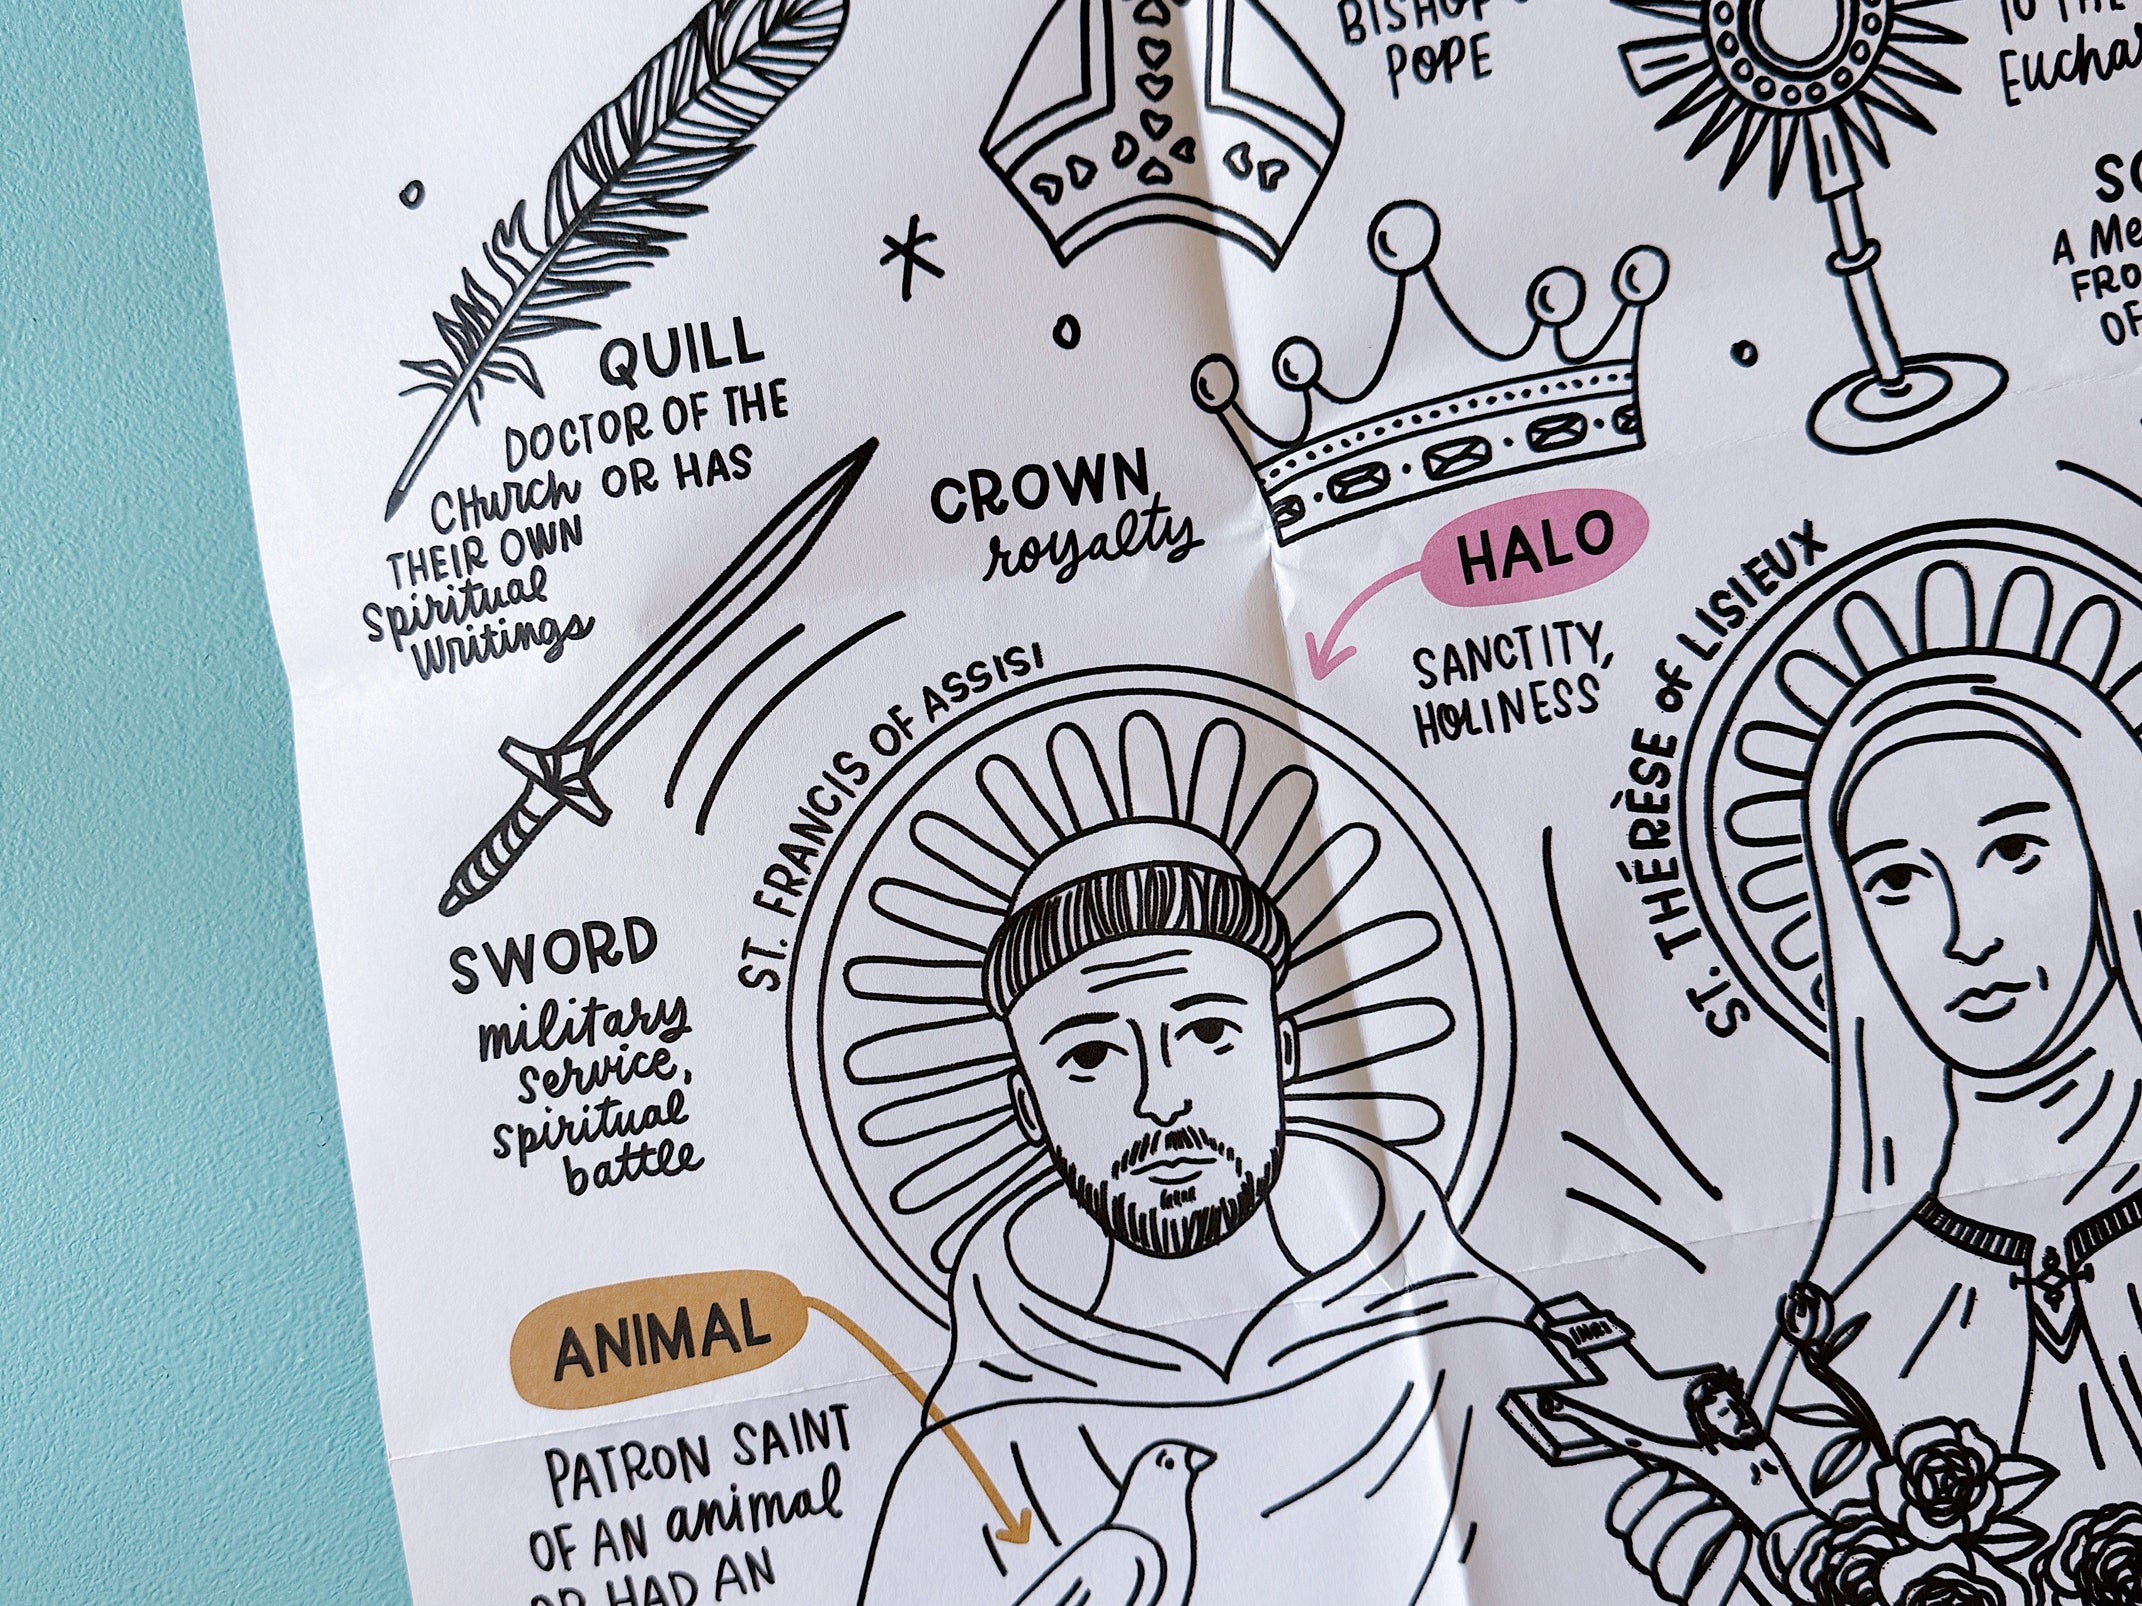 BISHOP
POPE
TO THE
QUILL
DOCTOR OF THE
CHurch OR HAS
THEIR OWN
Spiritual
Writings
CROWN
royalty
HALO
SANCTITY,
HOLINESS
A
OF
ST. FRANCIS OF ASSISI
ST. THÉRÈSE of LISIEUX
SWORD
military
service,
spiritual
battle
INRI
ANIMAL
PATRON SAINT
OF AN animal
OR HAD AN